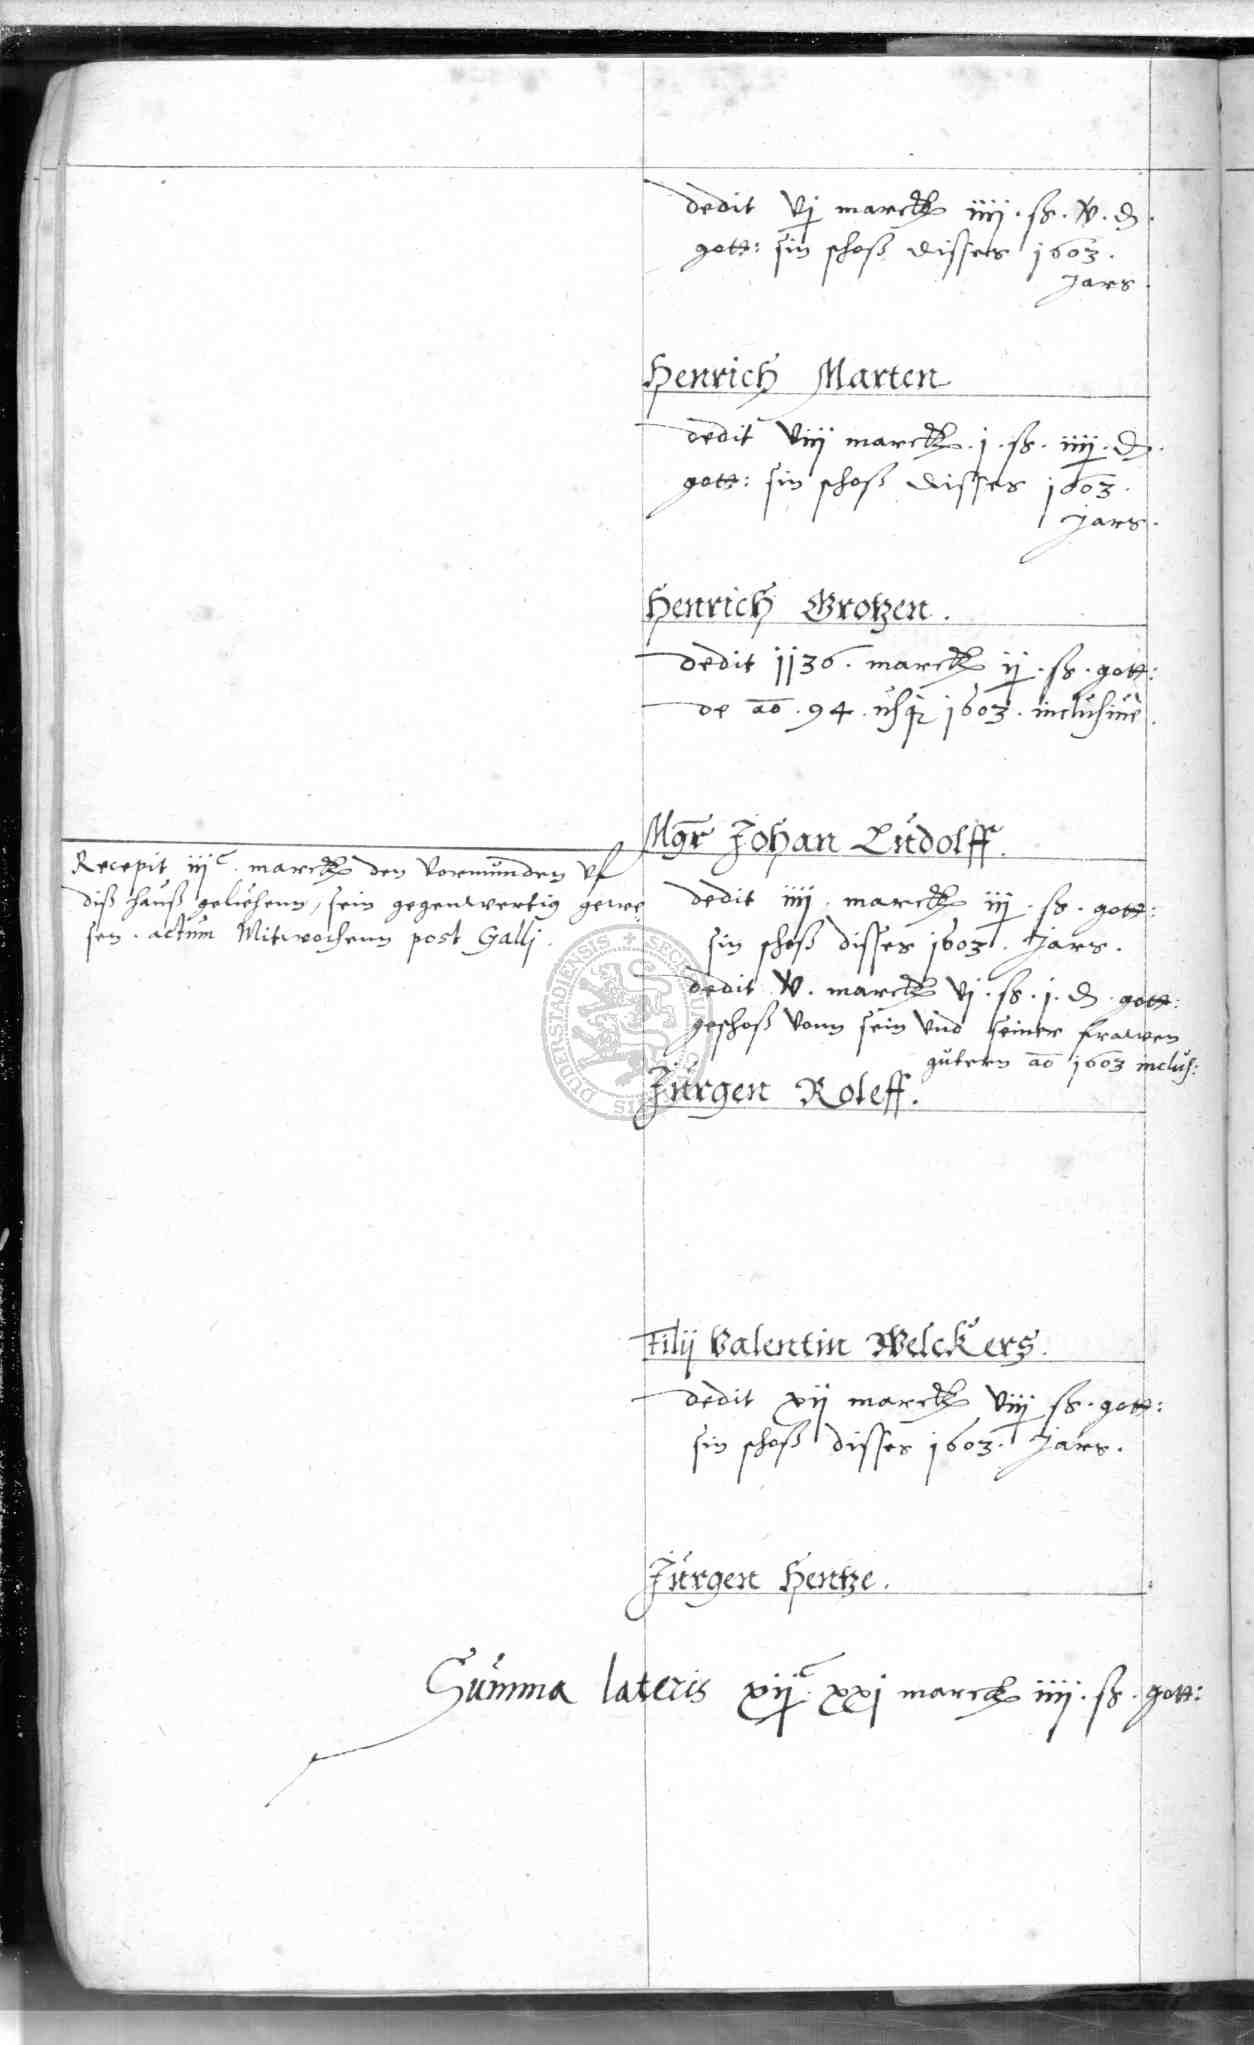 dedit vj marck iiij. ß. v. ₰.
gott: sin schoß disses 1603.
Jars.
Henrich Marten
dedit viij marck. j. ß. iiij. ₰.
gott: sin schoß disses 1603.
Jars.
Henrich Grotzen.
dedit jj36. marck ij. ß. gott:
de ao. 94. usq 1603. inclusive.
Mgr Johan Ludolff.
Recepit iijc. marck den vormunden uf
diß hauß geliehenn, sein gegenwertig gewe
sen. actum Mitwochenn post Galli.
dedit iiij marck iij. ß. gott:
sin schoß disses 1603. Jars.
dedit v. marck vj. ß. j. ₰. gott:
geschoß vonn sein und seiner frawen
gutern ao 1603 inclus:
Jürgen Roleff.
Filij Valentin Welckers.
dedit xij marck viij ß. gott:
sin schoß disses 1603. Jars.
Jürgen Hentze.
Summa lateris xijc. xxj marck iiij. ß. gott: